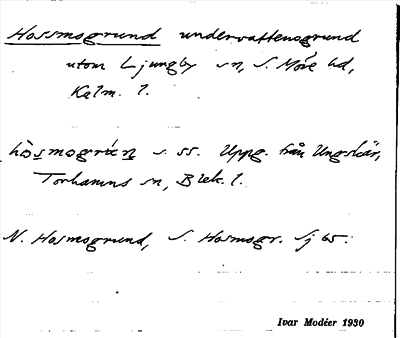 Hossmogrund undervattensgrund
utom Ljungby sn, S. Möre hd,
Kalm. l.
hòsmográ̱n s. ss. Uppg. från Ungskär,
Torhamns sn, Blek. l.
N. Hosmogrund, S. Hosmogr. Sj 65.
Ivar Modéer 1930